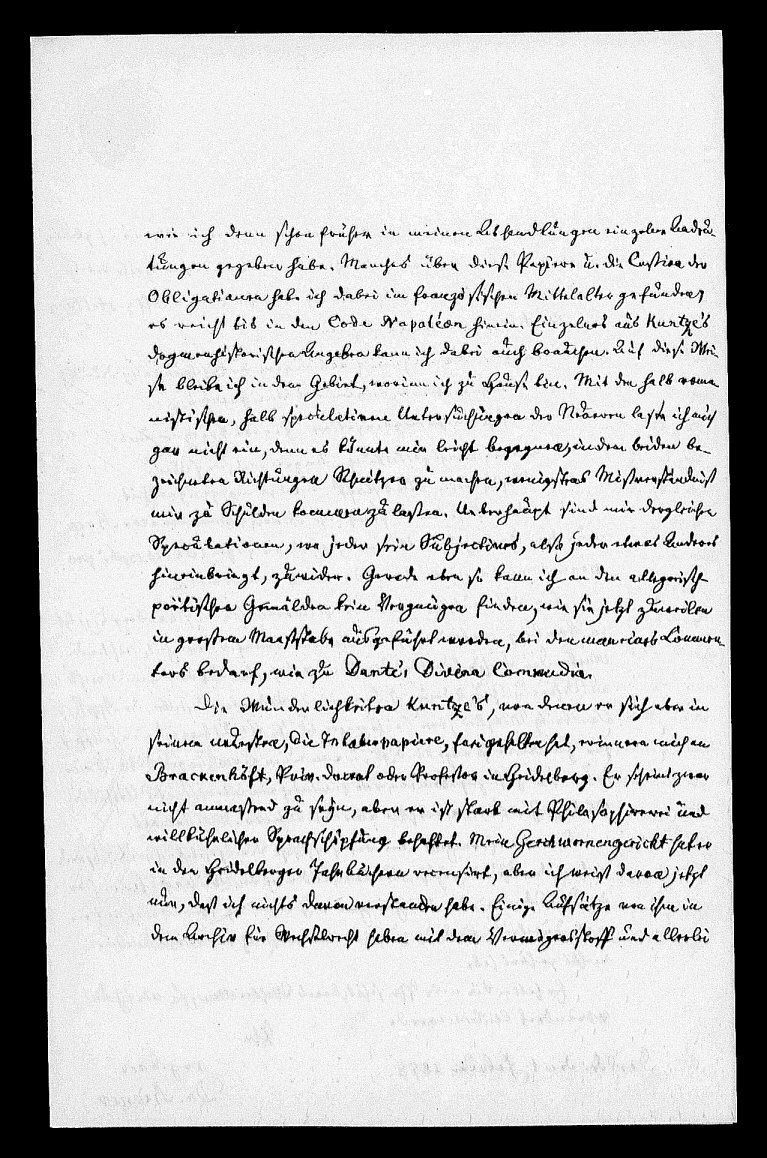 wie ich denn schon früher in meinen Abhandlungen einzelne Andeu-
tungen gegeben habe. Manches über diese Papiere u. die Cession der
Obligationen habe ich dabei im französischen Mittelalter gefunden,
es reicht bis in den Code Napoléon hinein. Einzelnes aus Kuntze's
dogmenhistorischen Angaben kann ich dabei auch brauchen. Auf diese Wei-
se bleibe ich in dem Gebiet, worinn ich zu Hause bin. Mit den halb roma-
nistischen, halb speculativen Untersuchungen der Neueren lasse ich mich
gar nicht ein, denn es könnte mir leicht begegnen, in den beiden be-
zeichneten Richtungen Schnitzer zu machen, wenigstens Missverständniss
mir zu Schulden kommen zu lassen. Ueberhaupt sind mir dergleichen
Speculationen, wo jeder sein Subjectives, also jeder etwas Anderes
hineinbringt, zuwider. Gerade eben so kann ich an den allegorisch-
poëtischen Gemälden kein Vergnügen finden, wie sie jetzt zuweilen
in grossem Maasstabe ausgeführt werden, bei den man eines Commen-
tars bedarf, wie zu Dante's Divina Commedia.
Die Wunderlichkeiten Kuntze's, von denen er sich aber in
seinem neuesten, die Inhaberpapiere, frei gehalten hat, erinnern mich an
Brackenhöft, Priv. docent oder Professor in Heidelberg. Er scheint zwar
nicht anmassend zu seyn, aber er ist stark mit Philosophirerei und
willkührlicher Sprachschöpfung behaftet. Mein Geschwornengericht hat er
in den Heidelberger Jahrbüchern recensirt, aber ich weiss davon jetzt
nur, dass ich nichts davon verstanden habe. Einige Aufsätze von ihm in
dem Archiv für Wechselrecht haben mit dem Vermögensstoff und allerlei